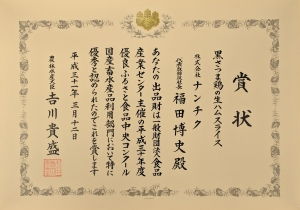 賞状
黒さつま鶏の生ハムスライス
株式会社ナンチク
代表取締役社長 福田博史殿
あなたの出品財は一般財団法人食品
産業センター主催の平成三十年度
優良ふるさと食品中央コンクール
国産畜水産品利用部門において特に
優秀と認められたのでこれを賞します
平成三十一年三月十二日
農林水産大臣 吉川貴盛